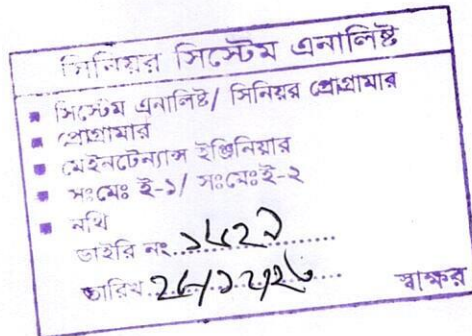 সিনিয়র সিস্টেম এনালিষ্ট
■ সিস্টেম এনালিষ্ট/ সিনিয়র প্রোগ্রামার
■ প্রোগ্রামার
■ মেইনটেন্যান্স ইঞ্জিনিয়ার
■ সঃমেঃ ই-১/ সঃমেঃই-২
■ নথি
ডাইরি নং
তারিখ
স্বাক্ষর